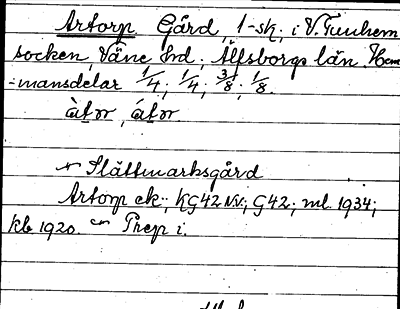 Artorp Gård, 1-sk, i V. Tunhem
socken, Väne hd; Älfsborgs län. Hem-
mansdelar 1/4; 1/4; 3/8; 1/8.
Slättmarksgård
Artorp ek; KG42 NV; G42; ml. 1934;
kb 1920. Prep i.